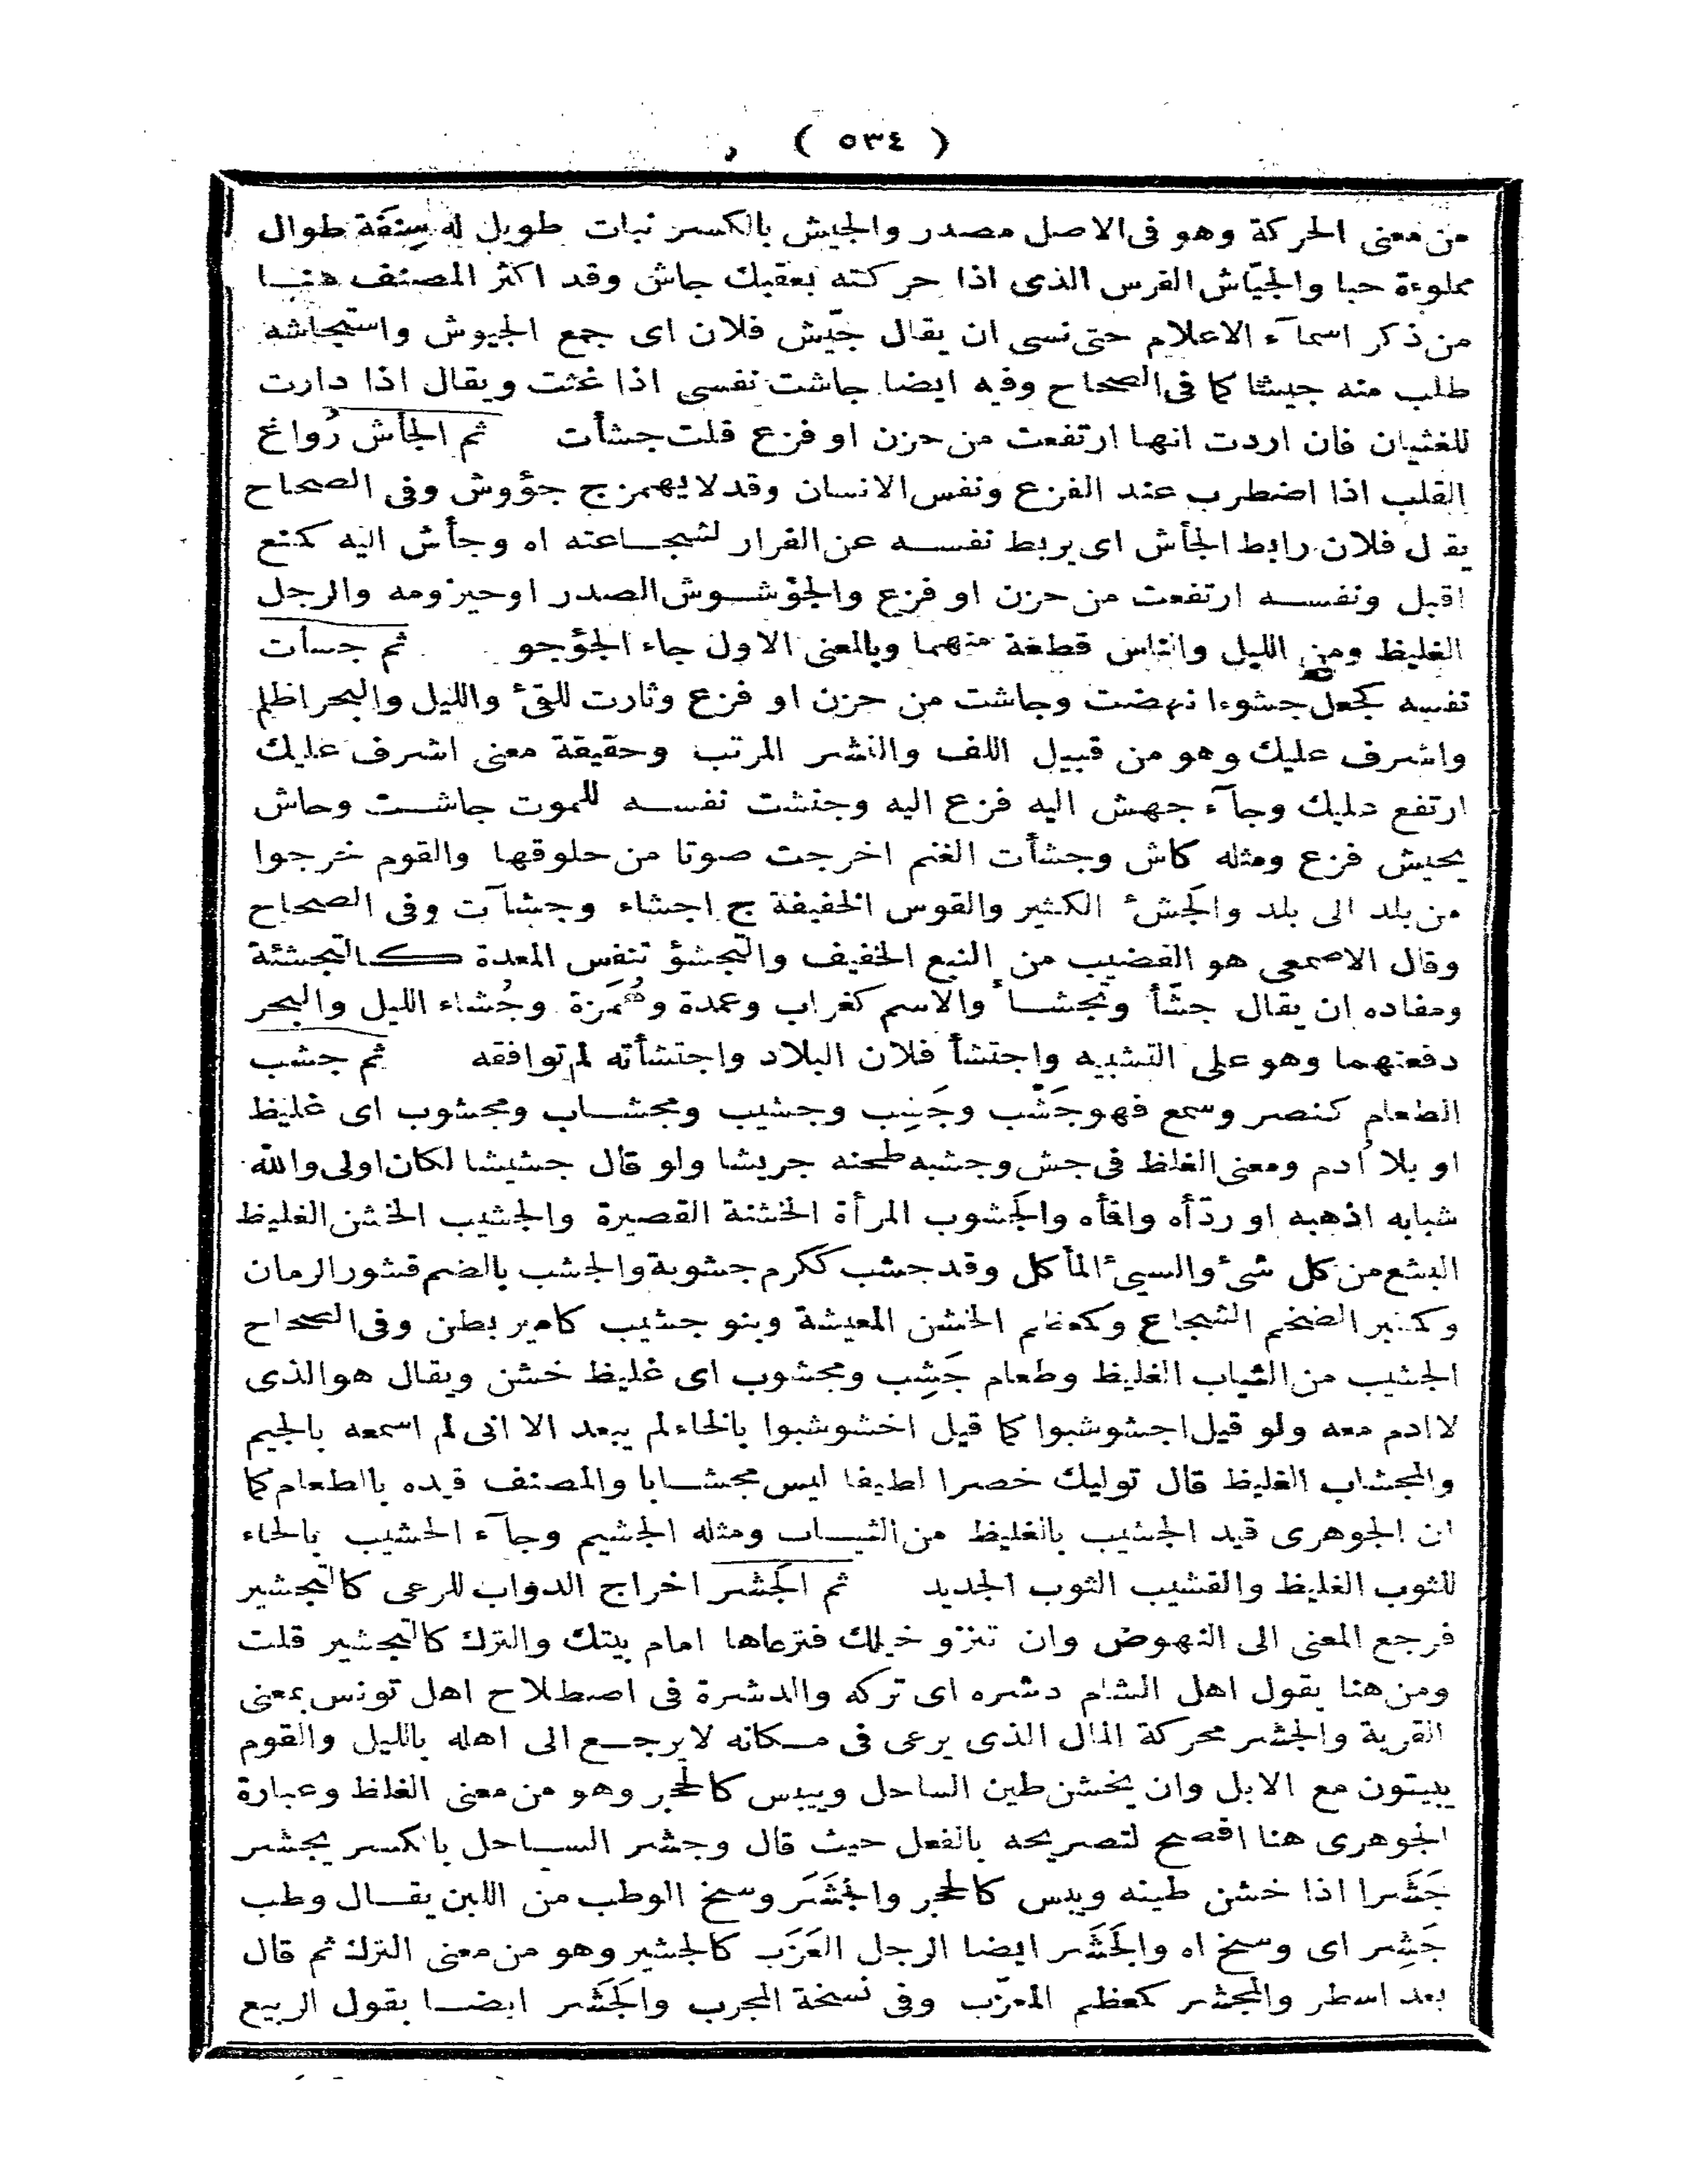 ( ٥٣٤ )
من معنى الحركة وهو فى الاصل مصدر والجيش بالكسر نبات طويل له سِنَفَة طوال
مملوءة حبا والجيّاش الفرس الذى اذا حركته بعقبك جاش وقد اكثر المصنف هنا
من ذكر اسمآء الاعلام حتى نسى ان يقال جيّش فلان اى جمع الجيوش واستجاشه
طلب منه جيشا كما فى الصحاح وفيه ايضا جاشت نفسى اذا غثت ويقال اذا دارت
للغثيان فان اردت انها ارتفعت من حزن او فزع قلت جشأت ثم الجأش رُواغ
القلب اذا اضطرب عند الفزع ونفس الانسان وقد لا يهمز ج جؤوش وفى الصحاح
يقال فلان رابط الجأش اى يربط نفسه عن الفرار لشجاعته اه وجأش اليه كمنع
اقبل ونفسه ارتفعت من حزن او فزع والجؤشوش الصدر او حيزومه والرجل
الغليظ ومن الليل والناس قطعة منهما وبالمعنى الاول جاء الجؤجو ثم جسأت
نفسه كجعل جشوءا نهضت وجاشت من حزن او فزع وثارت للقئ والليل والبحر اظلم
واشرف عليك وهو من قبيل اللف والنشر المرتب وحقيقة معنى اشرف عليك
ارتفع عليك وجآء جهش اليه فزع اليه وجنشت نفسه للموت جاشت وحاش
يحيش فزع ومثله كاش وجشأت الغنم اخرجت صوتا من حلوقها والقوم خرجوا
من بلد الى بلد والجَشْء الكثير والقوس الخفيفة ج اجشاء وجشآت وفى الصحاح
وقال الاصمعى هو القضيب من النبع الخفيف والتجشؤ تنفس المعدة كالتجشئة
ومفاده ان يقال جشّأ وتجشأ والاسم كغراب وعمدة وهُمَزة وجُشاء الليل والبحر
دفعتهما وهو على التشبيه واجتشأ فلان البلاد واجتشأته لم توافقه ثم جشب
الطعام كنصر وسمع فهو جَشْب وجَشِب وجشيب ومجشاب ومجشوب اى غليظ
او بلا اُدم ومعنى الغلظ فى جش وجشبه طحنه جريشا ولو قال جشيشا لكان اولى والله
شبابه اذهبه او ردّأه واقأه والجَشوب المرأة الخشنة القصيرة والجشيب الخشن الغليظ
البشع من كل شئ والسيئ المأكل وقد جشب ككرم جشوبة والجشب بالضم قشور الرمان
وكمنبر الضخم الشجاع وكمعظم الخشن المعيشة وبنو جشيب كامير بطن وفى الصحاح
الجشيب من الثياب الغليظ وطعام جَشِب ومجشوب اى غليظ خشن ويقال هو الذى
لا ادم معه ولو قيل اجشوشبوا كما قيل اخشوشبوا بالخاء لم يبعد الا انى لم اسمعه بالجيم
والمجشاب الغليظ قال توليك خصرا لطيفا ليس مجشابا والمصنف قيده بالطعام كما
ان الجوهرى قيد الجشيب بالغليظ من الثياب ومثله الجشيم وجآء الحشيب بالحاء
للثوب الغليظ والقشيب الثوب الجديد ثم الجَشْر اخراج الدواب للرعى كالتجشير
فرجع المعنى الى النهوض وان تنزو خيلك فترعاها امام بيتك والترك كالتجشير قلت
ومن هنا يقول اهل الشام دشره اى تركه والدشرة فى اصطلاح اهل تونس بمعنى
القرية والجشر محركة المال الذى يرعى فى مكانه لا يرجع الى اهله بالليل والقوم
يبيتون مع الابل وان يخشن طين الساحل وييبس كالحجر وهو من معنى الغلظ وعبارة
الجوهرى هنا افصح لتصريحه بالفعل حيث قال وجشر الساحل بالكسر يجشر
جَشَرا اذا خشن طينه ويبس كالحجر والجَشَر وسخ الوطب من اللبن يقال وطب
جَشِر اى وسخ اه والجَشَر ايضا الرجل العَزَب كالجشير وهو من معنى الترك ثم قال
بعد اسطر والمجشر كمعظم المعزّب وفى نسخة المجرب والجَشَر ايضا بقول الربيع